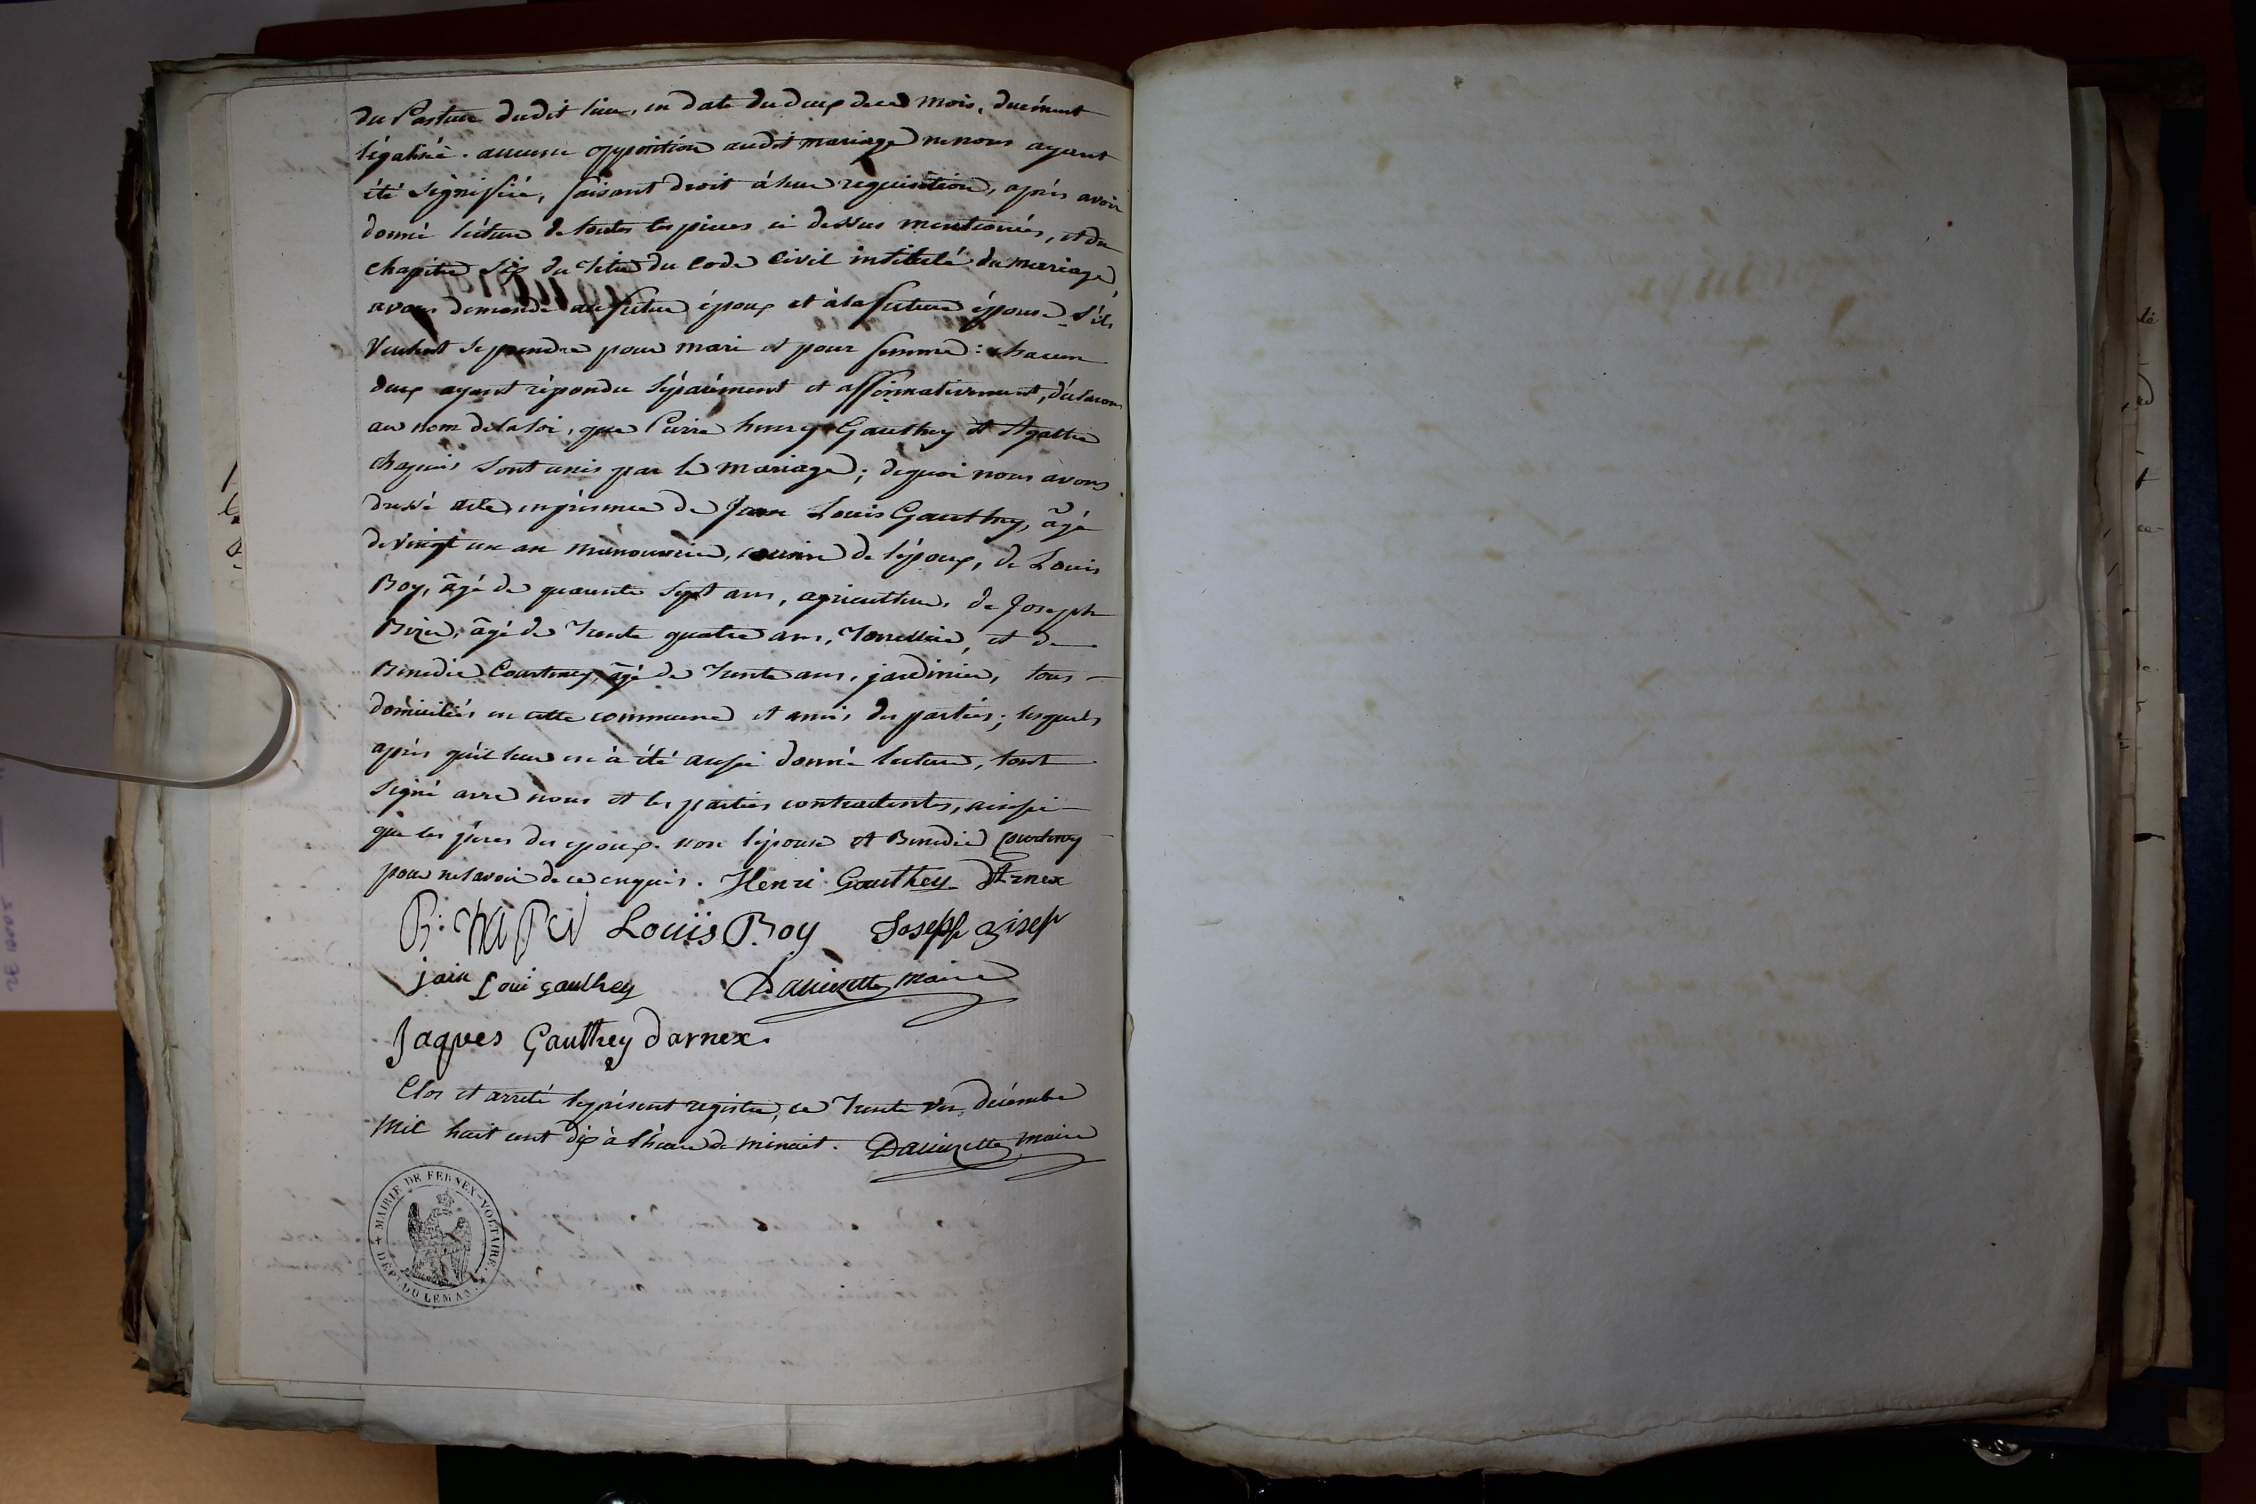 du Pasteur dudit lieu, en date du deux de ce mois, duement
légalisée. aucune opposition audit mariage ne nous ayant
été signifiée, faisant droit à leur requisition, après avoir
donné lecture de toutes les pieces ci dessus mentionées, et du
chapitre six du Titre du Code Civil intitulé du mariage,
avons demandé au futur époux et à la future épouse s'ils
veulent se prendre pour mari et pour femme: chacun
deux ayant répondu séparément et affirmativement, déclarons
au nom de la loi, que Pierre henry Gauthey et Agathe
chapuis sont unis par le mariage; dequoi nous avons
dressé acte, en présence de Jean Louis Gauthey, âgé
de vingt un an manouvrier, cousin de l'époux, de Louis
Boy, âgé de quarante sept ans, agriculteur, de Joseph
âgé de trente quatre ans, Tonellier, et de
Benedic Courtney, âgé de trente ans, jardinier, tous
domiciliés en cette commune et amis des parties; lesquels
après qu'il leur en à été aussi donné lecture, l'ont
signé avec nous et les parties contractantes, ainsi
que les pères des epoux. non l'épouse et Benedic Courtney
pour ne savoir de ce enquis. Henri Gauthey d'Arnex
Louis Boy Joseph
jain Loui gauthey maire
Jaques Gauthey darnex.
Clos et arreté le présent registre, ce trente un décembre
Mil huit cent dix à l'heure de minuit. maire
MAIRIE DE FERNEX-VOLTAIRE.
DÉPT. DU LEMAN.